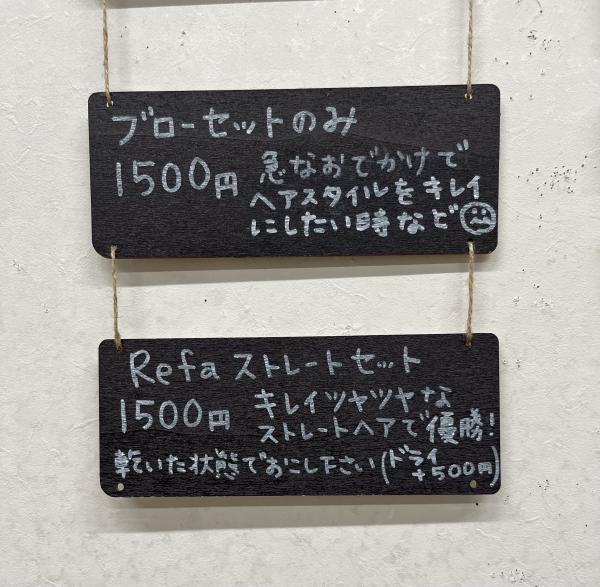 ブローセットのみ
1500円
急なおでかけで
ヘアスタイルをキレイ
にしたい時など
Refa ストレートセット
1500円
キレイツヤツヤな
ストレートヘアで優勝!
乾いた状態でおこし下さい(ドライ
+500円)